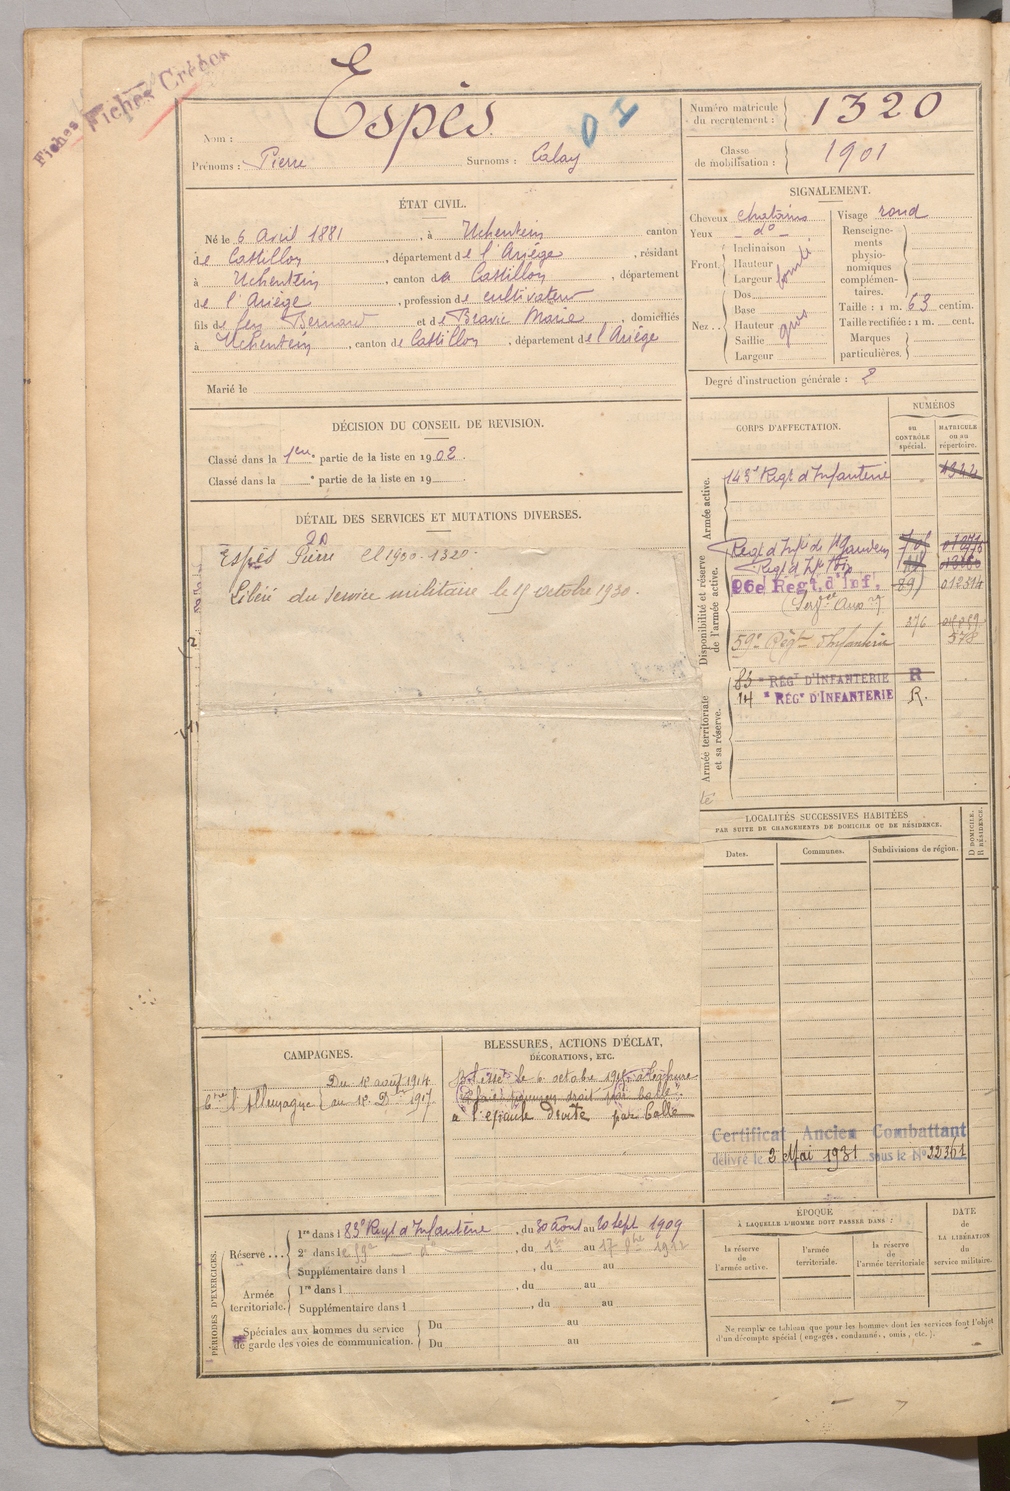 Fiches Fiches Créées
Nom : Espès
Prénoms : Pierre Surnoms : Calay
Numéro matricule du recrutement : 1320
Classe de mobilisation : 1901
ÉTAT CIVIL.
Né le 6 Avril 1881, à Uchentein canton
de Castillon, département de l'Ariège, résidant
à Uchentein, canton de Castillon, département
de l'Ariège, profession de cultivateur
fils de feu Bernard et de Beavic Marie, domiciliés
à Uchentein, canton de Castillon, département de l'Ariège
Marié le
SIGNALEMENT.
Cheveux chatains
Yeux do
Front Inclinaison
Hauteur
Largeur
Nez Dos
Base
Hauteur
Saillie gros
Largeur
Visage rond
Renseignements physionomiques complémentaires.
Taille : 1 m. 63 centim.
Taille rectifiée : 1 m. cent.
Marques particulières.
Degré d'instruction générale : 2
DÉCISION DU CONSEIL DE REVISION.
Classé dans la 1ere partie de la liste en 1902.
Classé dans la e partie de la liste en 19
DÉTAIL DES SERVICES ET MUTATIONS DIVERSES.
Espès Pierre Cl 1900-1320-
Libéré du service militaire le 15 octobre 1930.
CORPS D'AFFECTATION.
NUMÉROS
au CONTRÔLE spécial.
MATRICULE ou au répertoire.
Armée active.
143e Regt d'Infanterie 1344
Disponibilité et réserve de l'armée active.
Regt d'Infie de St Gaudens
96e Régt d'Inf. 012314
376
59e Régt d'Infanterie 578
Armée territoriale et sa réserve.
83 e RÉGt D'INFANTERIE R
14 e RÉGt D'INFANTERIE R.
LOCALITÉS SUCCESSIVES HABITÉES
PAR SUITE DE CHANGEMENTS DE DOMICILE OU DE RÉSIDENCE.
Dates. Communes. Subdivisions de région. D DOMICILE. R RÉSIDENCE.
CAMPAGNES.
Ctre l'Allemagne Du 12 aout 1914
au 12 Dbre 1917
BLESSURES, ACTIONS D'ÉCLAT,
DÉCORATIONS, ETC.
Blessé le 6 octobre
droit par balle
à l'épaule droite par balle
Certificat Ancien Combattant
délivré le 2 Mai 1931 sous le No 22361
PÉRIODES D'EXERCICES.
Réserve 1re dans le 83e Regt d'Infanterie, du 30 Aout au 20 Sept 1909
2e dans le 59e do, du 1er au 17 8bre 1912
Supplémentaire dans l , du au
Armée territoriale. 1re dans l , du au
Supplémentaire dans l , du au
Spéciales aux hommes du service Du au
de garde des voies de communication. Du au
ÉPOQUE
À LAQUELLE L'HOMME DOIT PASSER DANS :
la réserve de l'armée active.
l'armée territoriale.
la réserve de l'armée territoriale
DATE de LA LIBÉRATION du service militaire.
Ne remplir ce tableau que pour les hommes dont les services font l'objet
d'un décompte spécial (engagés, condamné, omis, etc.).